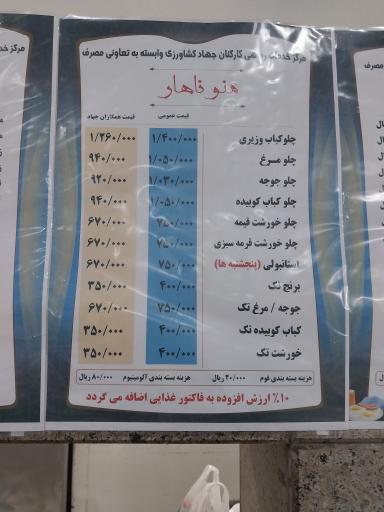 مرکز خدمات رفاهی کارکنان جهاد کشاورزی وابسته به تعاونی مصرف
منو ناهار
قیمت عمومی قیمت همکاران جهاد
چلوکباب وزیری ۱/۴۰۰/۰۰۰ ۱/۲۶۰/۰۰۰
چلو مرغ ۱/۰۵۰/۰۰۰ ۹۴۰/۰۰۰
چلو جوجه ۱/۰۳۰/۰۰۰ ۹۲۰/۰۰۰
چلو کباب کوبیده ۱/۰۵۰/۰۰۰ ۹۴۰/۰۰۰
چلو خورشت قیمه ۷۵۰/۰۰۰ ۶۷۰/۰۰۰
چلو خورشت قرمه سبزی ۷۵۰/۰۰۰ ۶۷۰/۰۰۰
استانبولی (پنجشنبه ها) ۷۵۰/۰۰۰ ۶۷۰/۰۰۰
برنج تک ۴۰۰/۰۰۰ ۳۵۰/۰۰۰
جوجه / مرغ تک ۷۵۰/۰۰۰ ۶۷۰/۰۰۰
کباب کوبیده تک ۴۰۰/۰۰۰ ۳۵۰/۰۰۰
خورشت تک ۴۰۰/۰۰۰ ۳۵۰/۰۰۰
هزینه بسته بندی فوم ۲۰/۰۰۰ ریال هزینه بسته بندی آلومینیوم ۸۰/۰۰۰ ریال
۱۰٪ ارزش افزوده به فاکتور غذایی اضافه می گردد